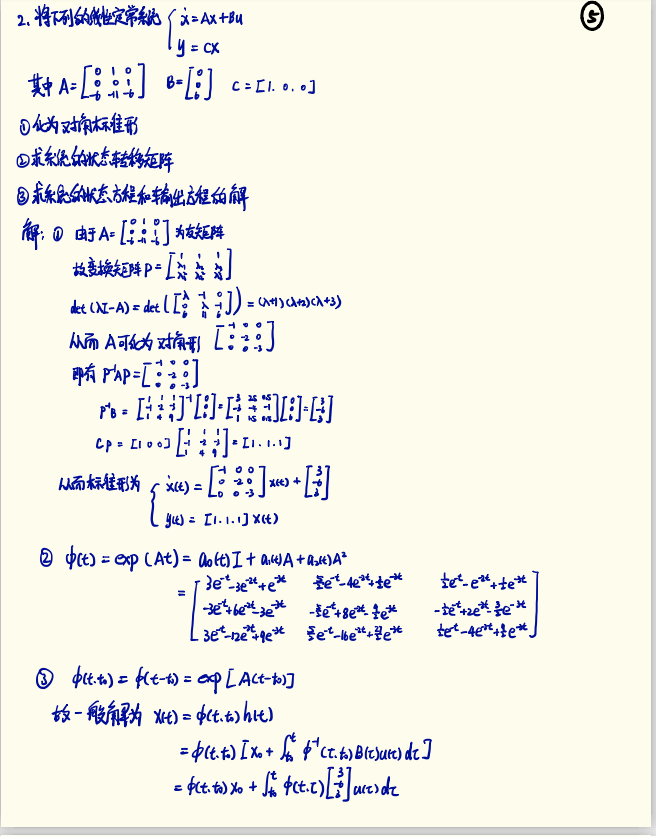 ⑤
2. 将下列的线性定常系统 { ẋ=Ax+Bu
y = cx
其中 A=[0 1 0; 0 0 1; -6 -11 -6] B=[0; 0; 6] C=[1. 0. 0]
①化为对角标准形
②求系统的状态转移矩阵
③求系统的状态方程和输出方程的解
解: ① 由于A=[0 1 0; 0 0 1; -6 -11 -6]为友矩阵
故变换矩阵P=[1 1 1; λ₁ λ₂ λ₃; λ₁² λ₂² λ₃²]
det(λI-A)=det([λ -1 0; 0 λ -1; 6 11 λ+6])=(λ+1)(λ+2)(λ+3)
从而 A可化为对角形 [-1 0 0; 0 -2 0; 0 0 -3]
即有 P⁻¹AP=[-1 0 0; 0 -2 0; 0 0 -3]
P⁻¹B = [1 1 1; -1 -2 -3; 1 4 9]⁻¹[0; 0; 6]=[3 2.5 0.5; -3 -4 -1; 1 1.5 0.5][0; 0; 6]=[3; -6; 3]
CP = [1 0 0][1 1 1; -1 -2 -3; 1 4 9]=[1. 1. 1]
从而标准形为 { ẋ(t) = [-1 0 0; 0 -2 0; 0 0 -3] x(t) + [3; -6; 3]
y(t) = [1. 1. 1] x(t)
② φ(t) = exp(At) = a₀(t)I + a₁(t)A + a₂(t)A²
= [3e⁻ᵗ-3e⁻²ᵗ+e⁻³ᵗ 5/2e⁻ᵗ-4e⁻²ᵗ+3/2e⁻³ᵗ 1/2e⁻ᵗ-e⁻²ᵗ+1/2e⁻³ᵗ
-3e⁻ᵗ+6e⁻²ᵗ-3e⁻³ᵗ -5/2e⁻ᵗ+8e⁻²ᵗ-9/2e⁻³ᵗ -1/2e⁻ᵗ+2e⁻²ᵗ-3/2e⁻³ᵗ
3e⁻ᵗ-12e⁻²ᵗ+9e⁻³ᵗ 5/2e⁻ᵗ-16e⁻²ᵗ+27/2e⁻³ᵗ 1/2e⁻ᵗ-4e⁻²ᵗ+9/2e⁻³ᵗ]
③ φ(t.t₀) = φ(t-t₀) = exp[A(t-t₀)]
故一般解为 x(t) = φ(t.t₀)h(t)
= φ(t.t₀)[x₀ + ∫ₜ₀ᵗ φ⁻¹(τ.t₀)B(τ)u(τ)dτ]
= φ(t.t₀)x₀ + ∫ₜ₀ᵗ φ(t.τ)[3; -6; 3]u(τ)dτ